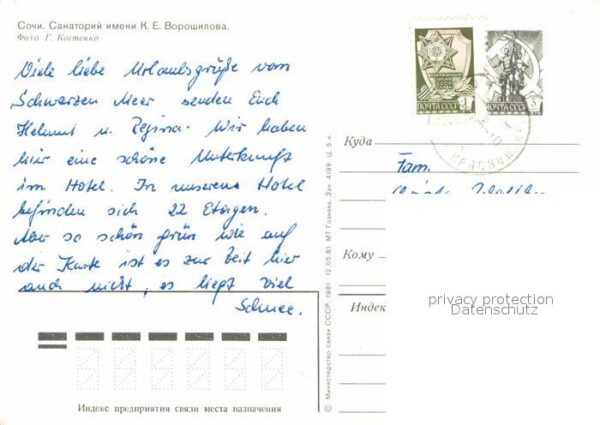 Сочи. Санаторий имени К. Е. Ворошилова.
Фото Г. Костенко
Viele liebe Urlaubsgrüße vom
Schwarzen Meer senden Euch
Helmut u. Regina. Wir haben
hier eine schöne Unterkunft
im Hotel. In unserem Hotel
befinden sich 22 Etagen.
Nur so schön grün wie auf
der Karte ist es zur Zeit hier
auch nicht, es liegt viel
Schnee.
ПОЧТА СССР
ПОЧТА СССР
Куда
Fam.
Кому
Индекс
privacy protection
Datenschutz
© Министерство связи СССР. 1981. 12.05.81. МТ Гознака. Зак. 4199. Ц. 5 к.
Индекс предприятия связи места назначения